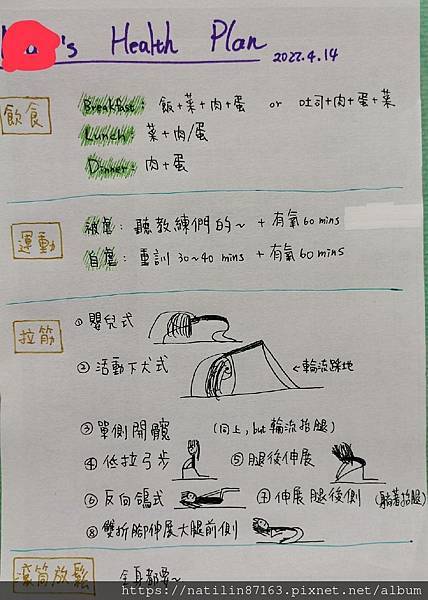 's Health Plan
2022.4.14
飲食
Breakfast: 飯+菜+肉+蛋 or 吐司+肉+蛋+菜
Lunch: 菜+肉/蛋
Dinner: 肉+蛋
運動
被虐: 聽教練們的~ + 有氧60 mins
自虐: 重訓 30~40 mins + 有氧60 mins
拉筋
① 嬰兒式
② 活動下犬式 ←輪流踩地
③ 單側開髖 (同上, but 輪流抬腿)
④ 低拉弓步 ⑤ 腿後伸展
⑥ 反向鴿式 ⑦ 伸展腿後側 (躺著抬腿)
⑧ 雙折腳伸展大腿前側
滾筒放鬆 全身都要~
https://natilin87163.pixnet.net/album